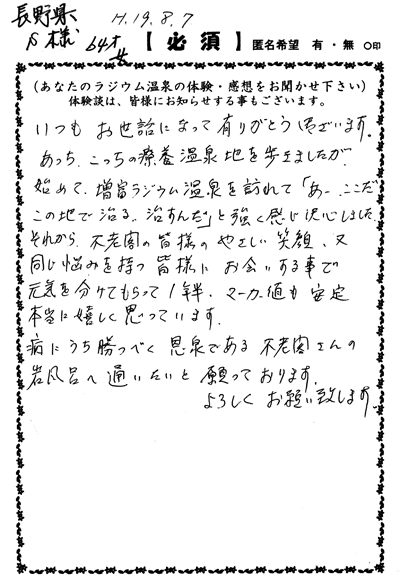 長野県 H.19.8.7
S様 64才 女 【必須】 匿名希望 有・無 ○印
(あなたのラジウム温泉の体験・感想をお聞かせ下さい)
体験談は、皆様にお知らせする事もございます。
いつも お世話になって有りがとうございます。
あっち、こっちの療養温泉地を歩きましたが
始めて、増富ラジウム温泉を訪れて「あー、ここだ
この地で治る。治すんだ」と強く感じ決心しました
それから、不老閣の皆様のやさしい笑顔、又
同じ悩みを持つ皆様に お会いする事で
元気を分けてもらって1年半、マーカー値も安定
本当に嬉しく思っています。
病にうち勝つべく 恩泉である不老閣さんの
岩風呂へ通いたいと願っております。
よろしくお願い致します